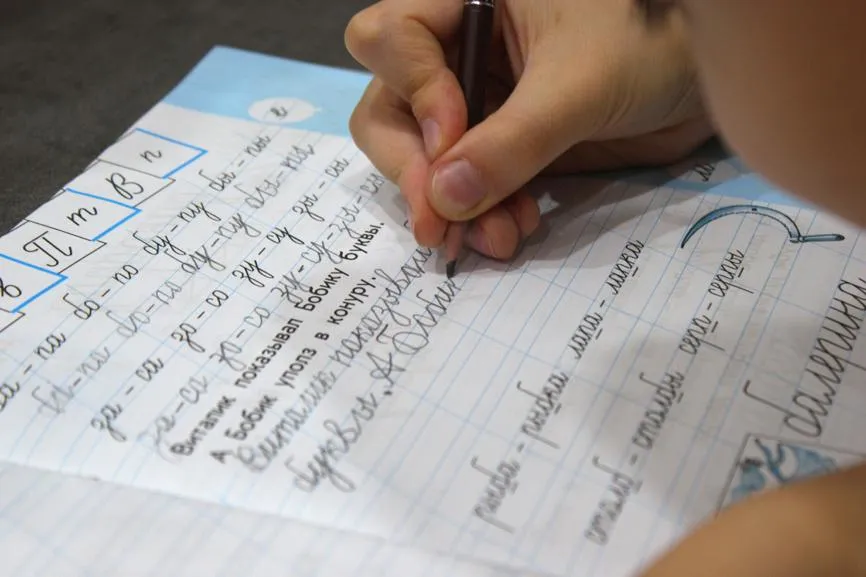 е
П т В п
а - па бо - по бу - пу бы - пы
ба - па бо - по бу - пу бы - пы
за - са зо - со зу - су зы - сы
за - са зо - со зу - су зы - сы
Виталик показывал Бобику буквы.
А Бобик уполз в конуру.
Виталик
буквы. А Боби
рыба - рыбка лапа - лапка
столб - столбы серп - серпы
балерина